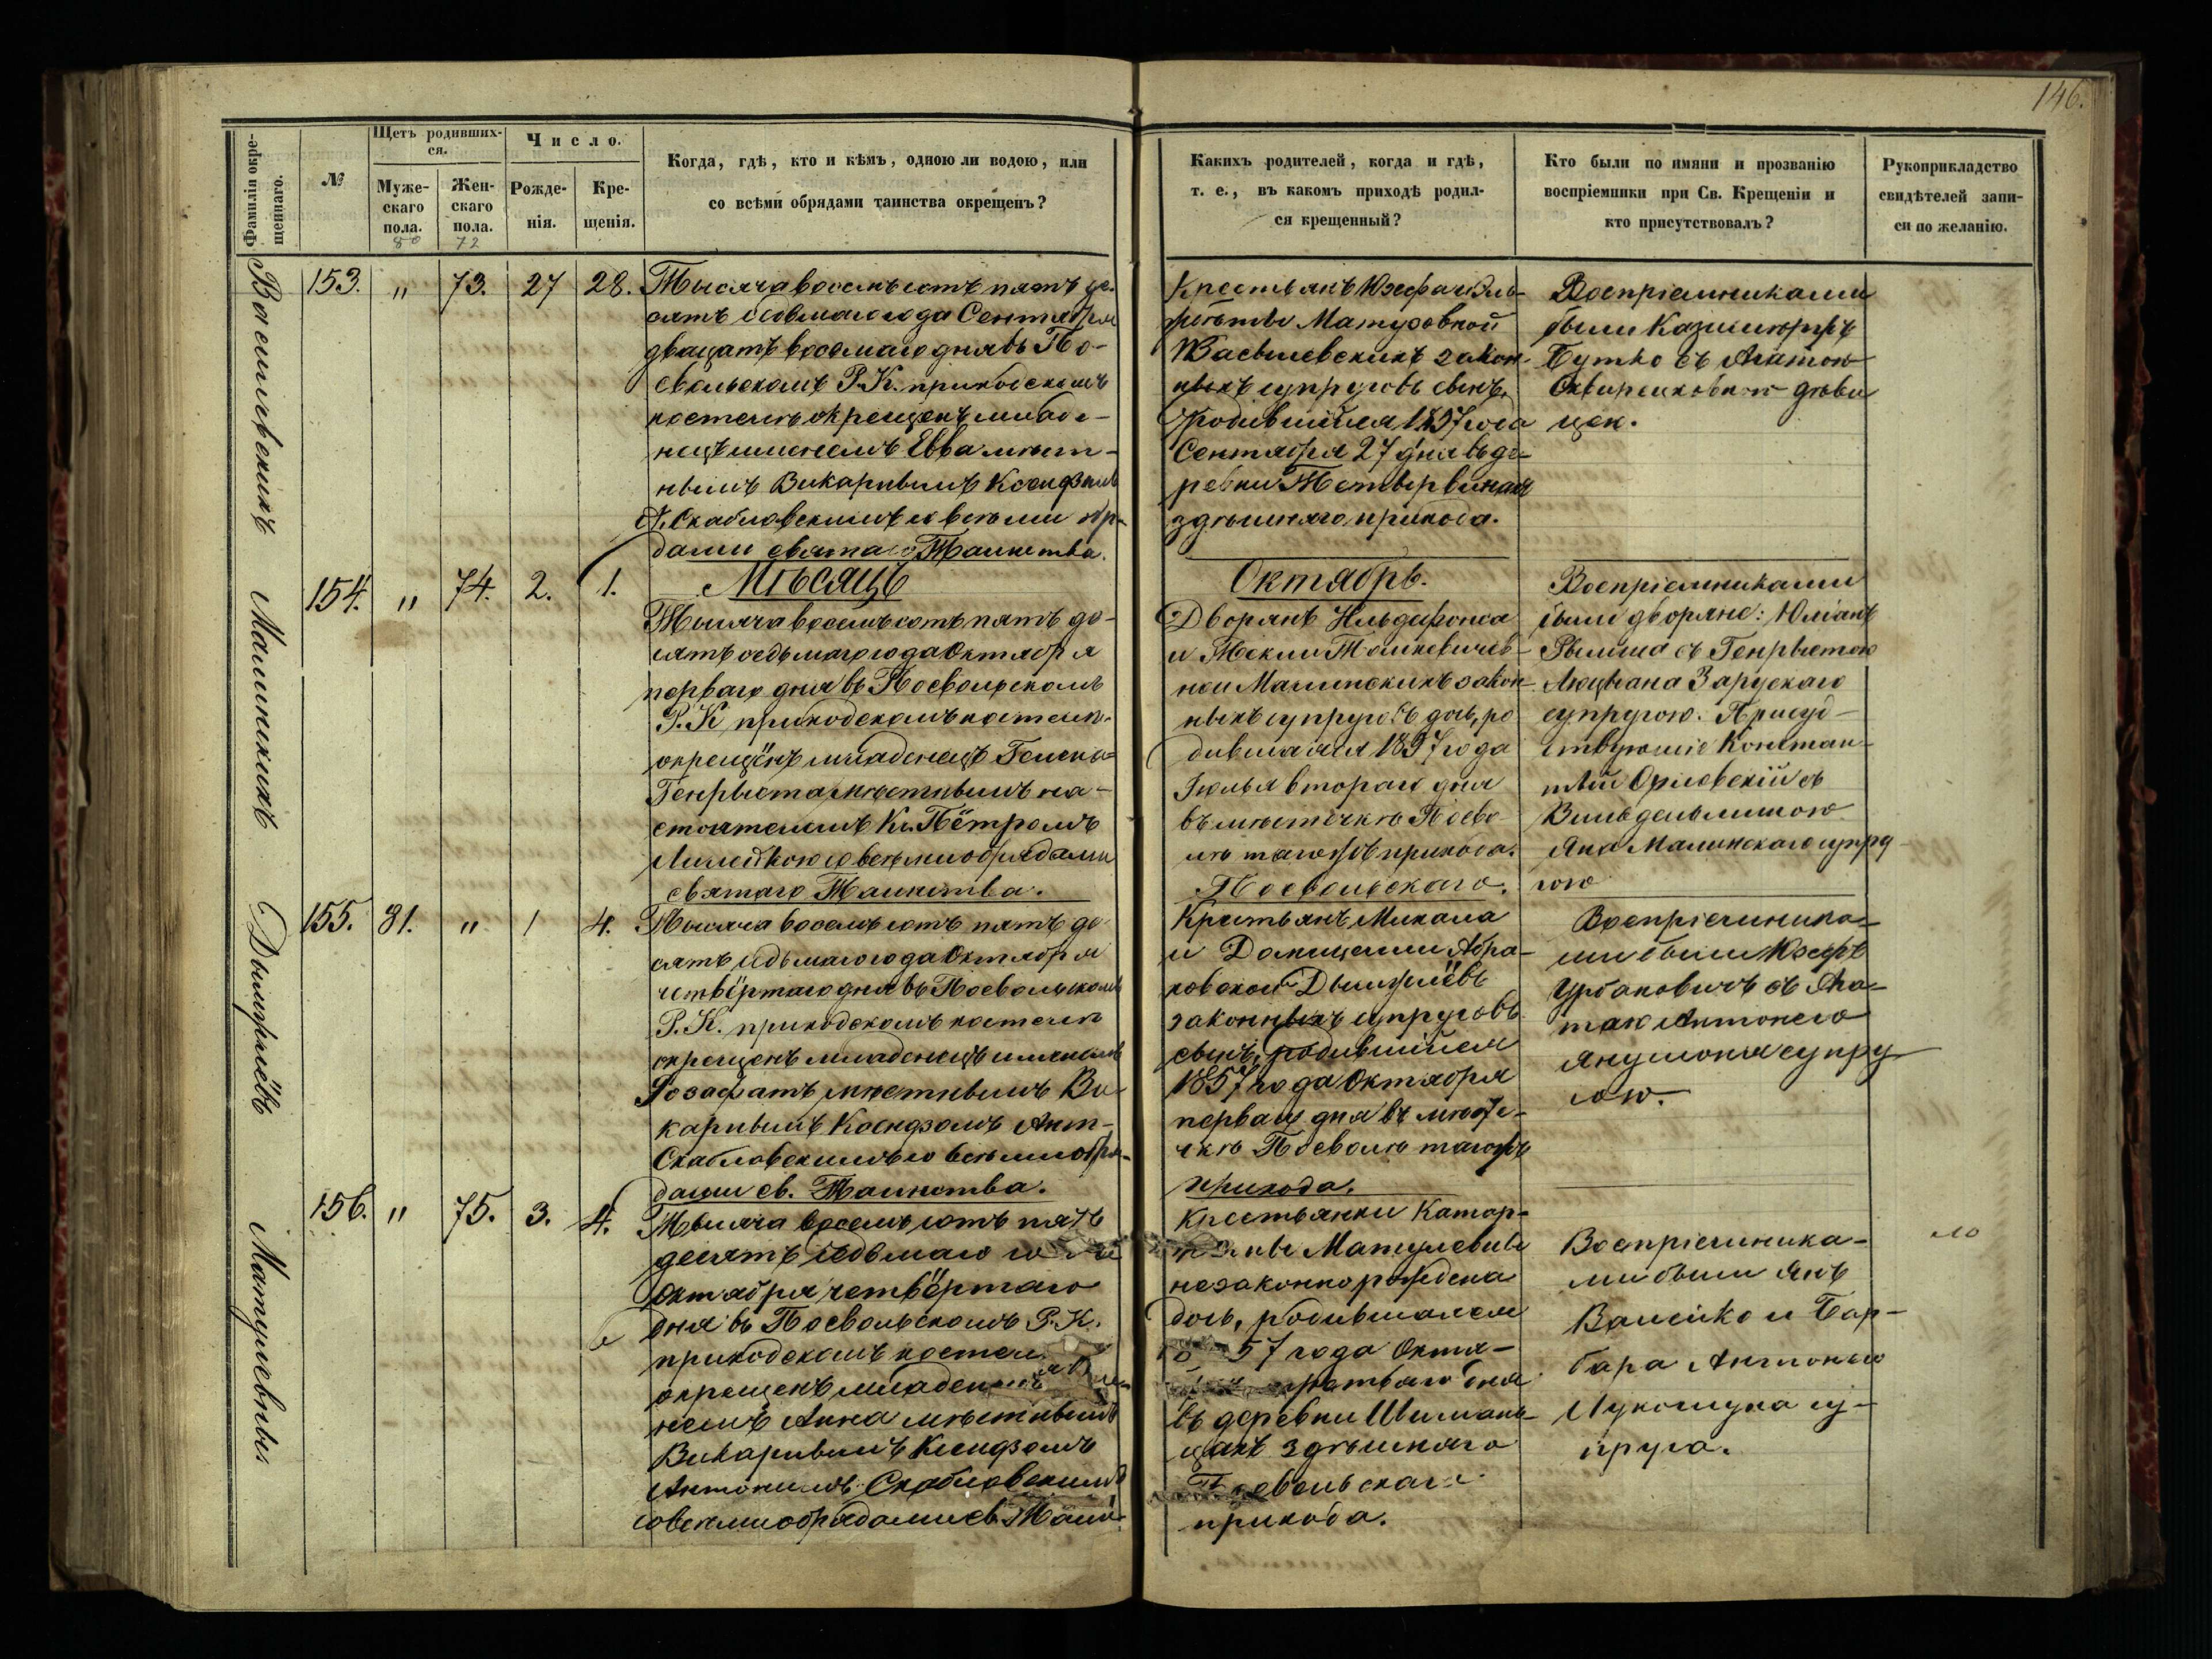 146.
Фамилія окре-
щеннаго.
№
Щетъ родивших-
ся.
Муже-
скаго
пола.
80
Жен-
скаго
пола.
72
Число.
Рожде-
нія.
Кре-
щенія.
Когда, гдѣ, кто и кѣмъ, одною ли водою, или
со всѣми обрядами таинства окрещенъ?
Какихъ родителей, когда и гдѣ,
т. е., въ какомъ приходѣ родил-
ся крещенный?
Кто были по имяни и прозванію
воспріемники при Св. Крещеніи и
кто присутствовалъ?
Рукоприкладство
свидѣтелей запи-
си по желанію.
153. " 73. 27 28.
Тысяча восемъ сотъ пятъ де-
сятъ седмаго года Сентября
двацатъ восмаго дня въ По-
свольскомъ Р. К. приходскомъ
костелѣ окрещенъ младе-
нецъ именемъ Евва мѣст-
нымъ Викарнымъ Ксендзомъ
А. Скабловскимъ со всѣми обря-
дами святаго Таинства.
Крестьянъ Юзефа и Эль-
жбѣты
закон-
ныхъ супруговъ сынъ,
родившійся 1857 года
Сентября 27 дня въ де-
ревни
здѣшняго прихода.
Воспріемниками
были Казимѣржъ
Бутко съ Агатою
дѣви
цею.
154. " 74. 2. 1.
Мѣсяцъ
Октябрь.
Малинскихъ
Тысяча восемъ сотъ пятъ де-
сятъ седьмаго года Октября
перваго дня въ Посвольскомъ
Р. К. приходскомъ костелѣ
окрещёнъ младенецъ Гелена-
Генрыета мѣстнымъ на-
стоятелемъ Кс. Пётромъ
со всѣми обрядами
святаго Таинства.
Дворянъ Ильдефонса
и Теклии
ной Малинскихъ закон-
ныхъ супруговъ дочь, ро
дившаяся 1857 года
Іюлья втораго дня
въ мѣстечкѣ Посво-
лѣ тагожъ прихода
Посвольскаго.
Воспріемниками
были дворяне: Юліанъ
съ Генрыетою
Люцыана Зарускаго
супругою. Присуд-
ствующіе Констан-
тый Орловскій съ
Вильгельминою
Яна Малинскаго супру
гою
155. 81. " 1 4.
Тысяча восемъ сотъ пятъ де
сятъ седьмаго года Октября
четвёртаго дня въ Посвольскомъ
Р. К. приходскомъ костелѣ
окрещенъ младенецъ именемъ
Іозафатъ мѣстнымъ Ви-
карнымъ Ксендзомъ Ант-
Скабловскимъ со всѣми обря-
дами св. Таинства.
Крестьянъ Михала
и Домицелии Абра-
законныхъ супруговъ
сынъ, родившійся
1857 года Октября
перваго дня въ мѣсте-
чкѣ Посволѣ тагожъ
прихода.
Воспріемника-
ми были Юзефъ
Урбановичъ съ Ага-
тою Антонего
супру
гою.
156. " 75. 3. 4.
Матулевны
Тысяча восемъ сотъ пятъ
десятъ седьмаго года
Октября четвёртаго
дня въ Посвольскомъ Р. К.
приходскомъ костелѣ
окрещенъ младенецъ
немъ Анна мѣстнымъ
Викарнымъ Ксендзомъ
Антонимъ Скабловскимъ
со всѣми обрядами св. Таин-
Крестьянки Катар-
Матулевны
незаконнорождена
дочь, родившаяся
57 года Октя-
третьяго дня
въ деревни Шиманы-
цахъ здѣшняго
Посвольскаго
прихода.
Воспріемника-
ми были Янъ
Валейко и Бар-
бара Антоныго
су-
пруга.